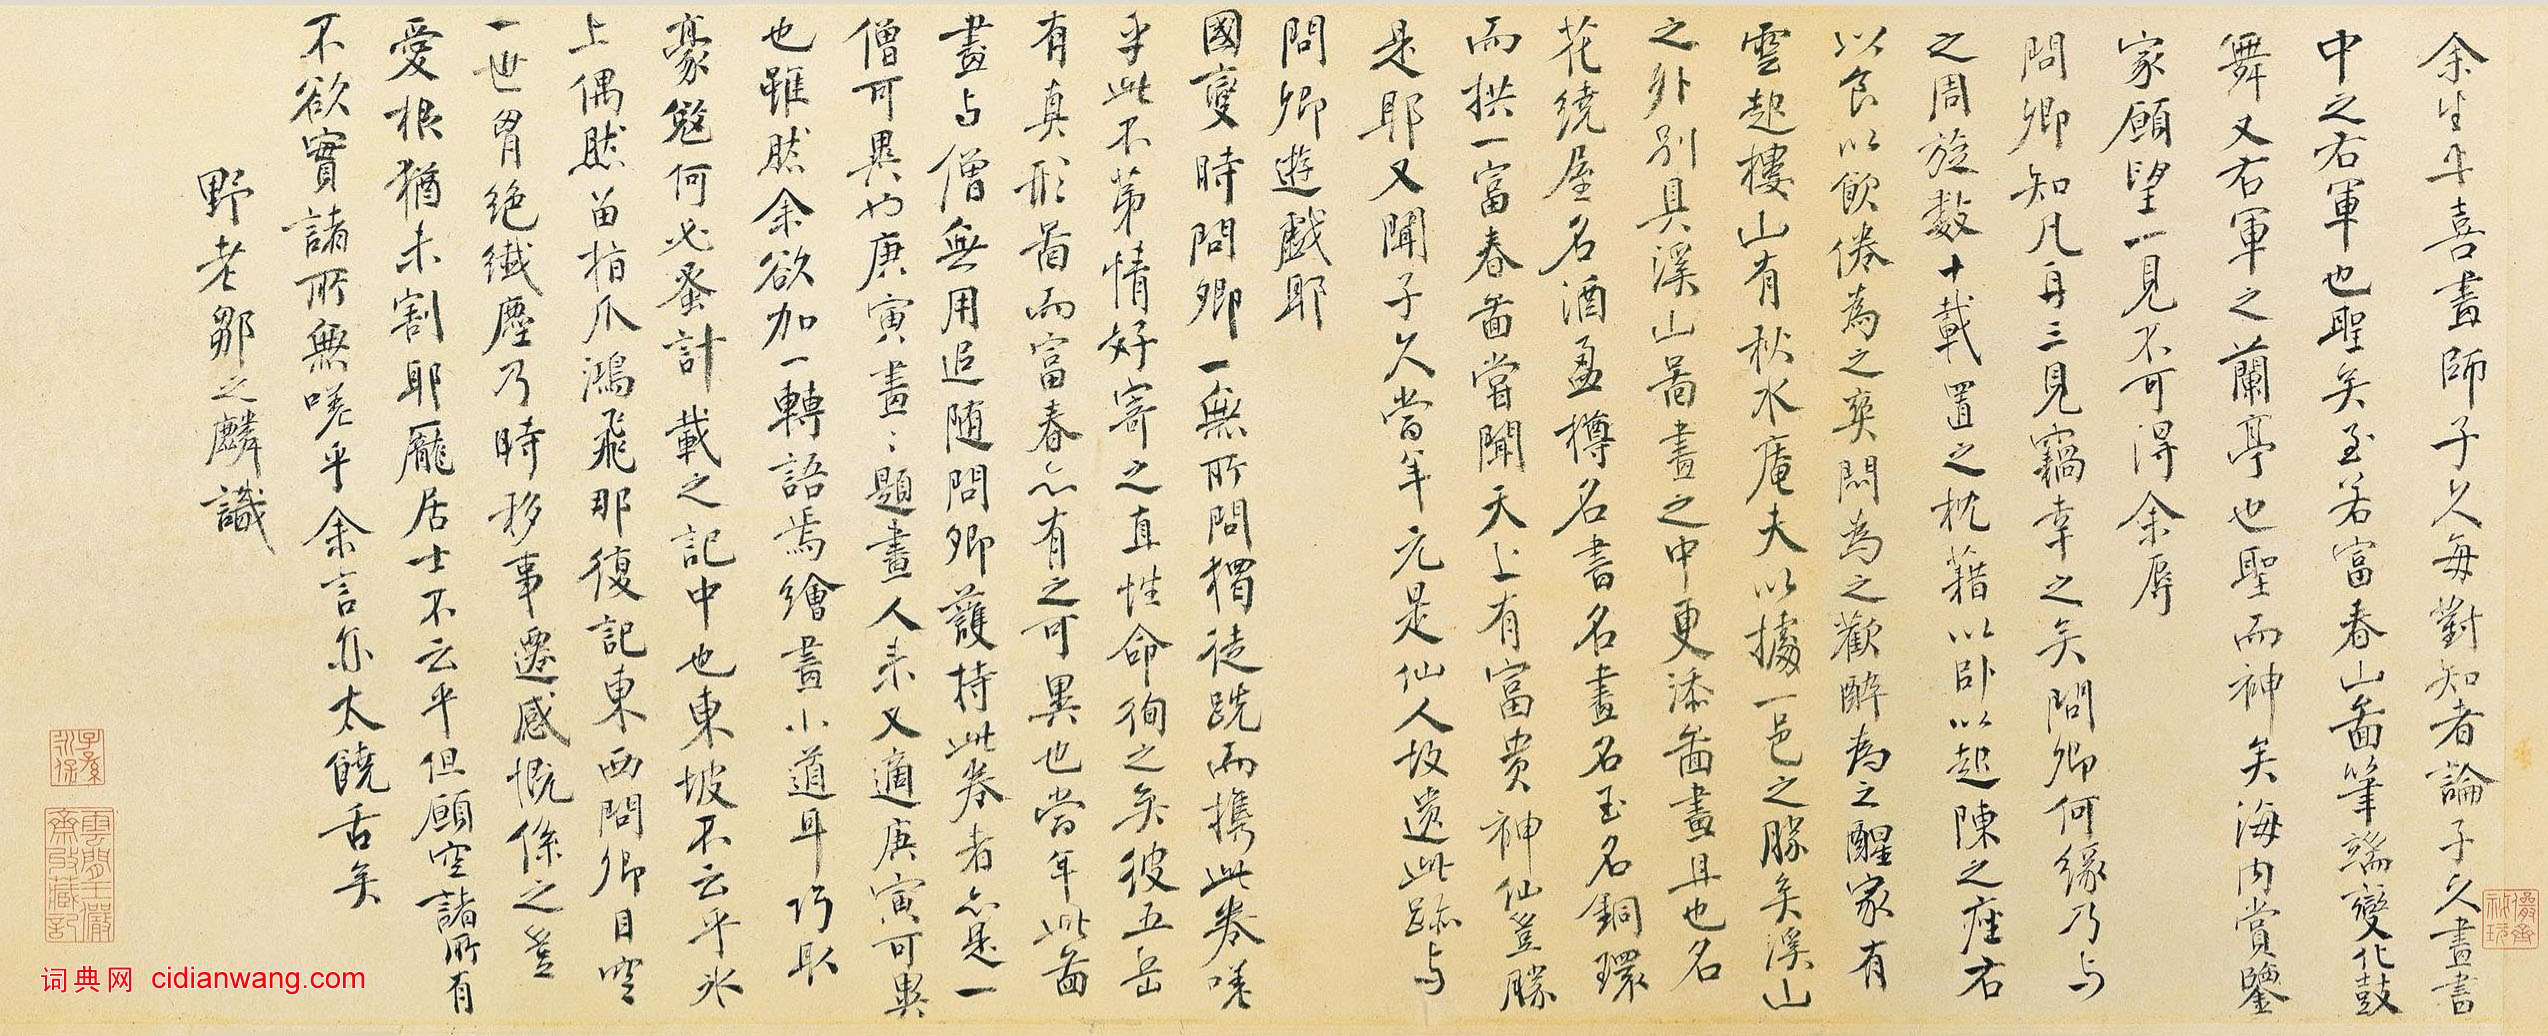 余生平喜畫師子久每對知者論子久畫書
中之右軍也聖矣至若富春山啚筆端變化鼓
舞又右軍之蘭亭也聖而神矣海內賞鑒
家願望一見不可得余辱
問卿知凡再三見竊幸之矣問卿何緣乃与
之周旋数十載置之枕藉以卧以起陳之座右
以食以飲倦為之爽悶為之歡醉為之醒家有
雲起樓山有秋水庵夫以據一邑之勝矣溪山
之外別具溪山啚畫之中更添啚畫且也名
花繞屋名酒盈樽名書名畫名玉名銅環
而拱一富春啚嘗聞天上有富贵神仙豈勝
是耶又聞子久當年元是仙人故遗此跡与
問卿遊戯耶
國變時問卿一無所問獨徒跣而携此卷嗟
乎此不第情好寄之直性命徇之矣彼五岳
有真形啚而富春亦有之可異也當年此啚
畫与僧無用追随問卿護持此卷者亦是一
僧可異也庚寅畫畫題畫人来又適庚寅可異
也雖然余欲加一轉語焉繪畫小道耳巧取
豪奪何必蚤計載之記中也東坡不云乎冰
上偶然留指爪鴻飛那復記東西問卿目空
一世胷絶纖塵乃時移事遷感慨係之豈
愛根猶未割耶龐居士不云乎但願空諸所有
不欲實諸所無嗟乎余言亦太饒舌矣
野老鄒之麟識
詞典网 cidianwang.com